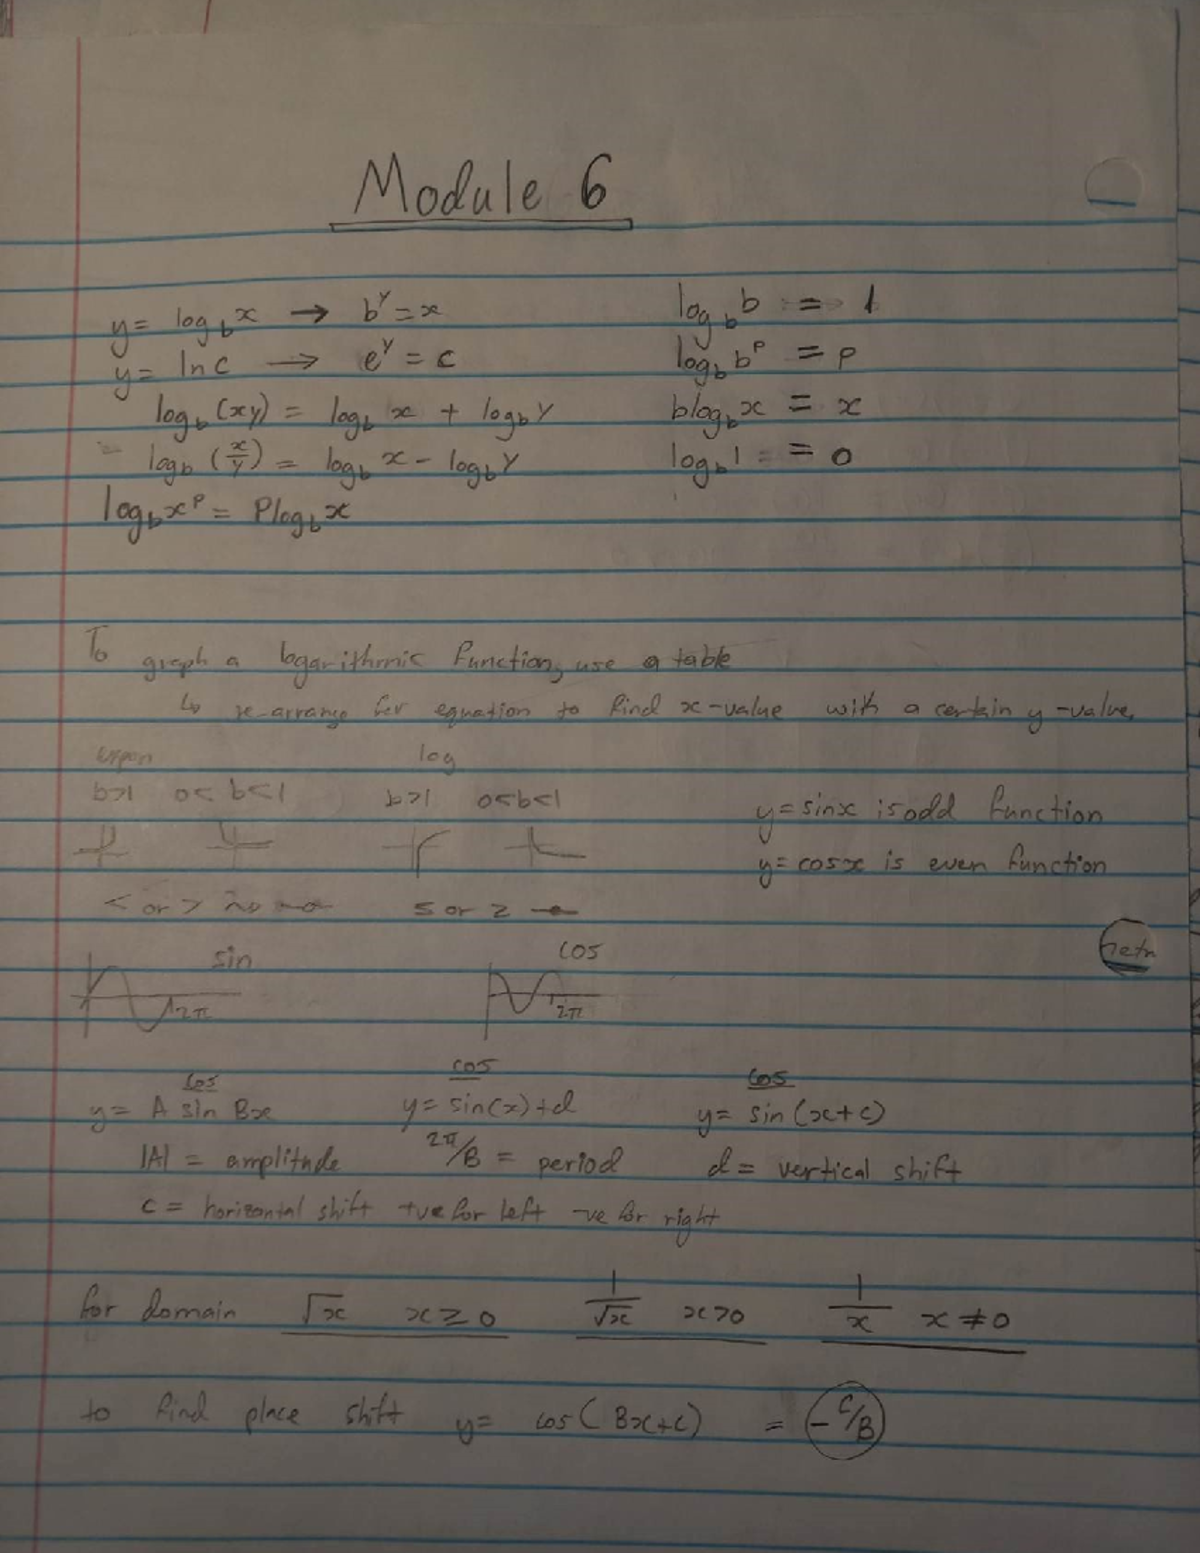 Module 6
y = log_b x → b^y = x    log_b b = 1
y = ln c → e^y = c    log_b b^p = p
log_b (xy) = log_b x + log_b y    blog_b x = x
log_b (x/y) = log_b x - log_b y    log_b 1 = 0
log_b x^p = P log_b x
To graph a logarithmic function, use a table
↳ re-arrange for equation to find x-value with a certain y-value,
expon    log
b>1  0<b<1    b>1  0<b<1    y = sinx is odd function
y = cosx is even function
< or >    ≤ or ≥
sin    cos
2π    2π
cos    cos    cos
y = A sin Bx    y = sin(x)+d    y = sin (x+c)
|A| = amplitude    2π/B = period    d = vertical shift
c = horizontal shift +ve for left -ve for right
for domain  √x  x≥0    1/√x  x>0    1/x  x≠0
to find place shift  y = cos(Bx+c) = -c/B